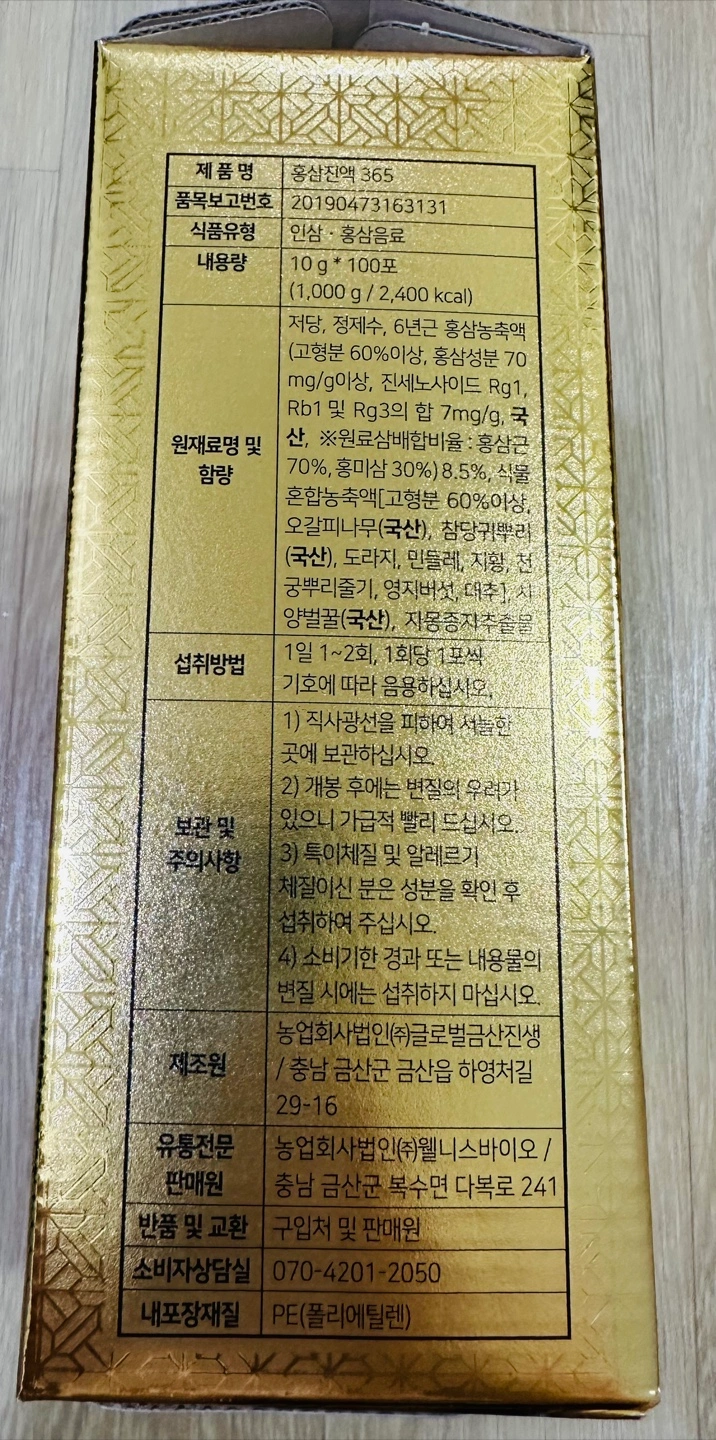 제 품 명 홍삼진액 365
품목보고번호 20190473163131
식품유형 인삼 · 홍삼음료
내용량 10 g * 100포
(1,000 g / 2,400 kcal)
원재료명 및 함량
저당, 정제수, 6년근 홍삼농축액
(고형분 60%이상, 홍삼성분 70
mg/g이상, 진세노사이드 Rg1,
Rb1 및 Rg3의 합 7mg/g, 국
산, ※원료삼배합비율 : 홍삼근
70%, 홍미삼 30%) 8.5%, 식물
혼합농축액[고형분 60%이상,
오갈피나무(국산), 참당귀뿌리
(국산), 도라지, 민들레, 지황, 천
궁뿌리줄기, 영지버섯, 대추], 사
양벌꿀(국산), 자몽종자추출물
섭취방법
1일 1~2회, 1회당 1포씩
기호에 따라 음용하십시오.
보관 및
주의사항
1) 직사광선을 피하여 서늘한
곳에 보관하십시오.
2) 개봉 후에는 변질의 우려가
있으니 가급적 빨리 드십시오.
3) 특이체질 및 알레르기
체질이신 분은 성분을 확인 후
섭취하여 주십시오.
4) 소비기한 경과 또는 내용물의
변질 시에는 섭취하지 마십시오.
제조원
농업회사법인㈜글로벌금산진생
/ 충남 금산군 금산읍 하영처길
29-16
유통전문
판매원
농업회사법인㈜웰니스바이오 /
충남 금산군 복수면 다복로 241
반품 및 교환 구입처 및 판매원
소비자상담실 070-4201-2050
내포장재질 PE(폴리에틸렌)